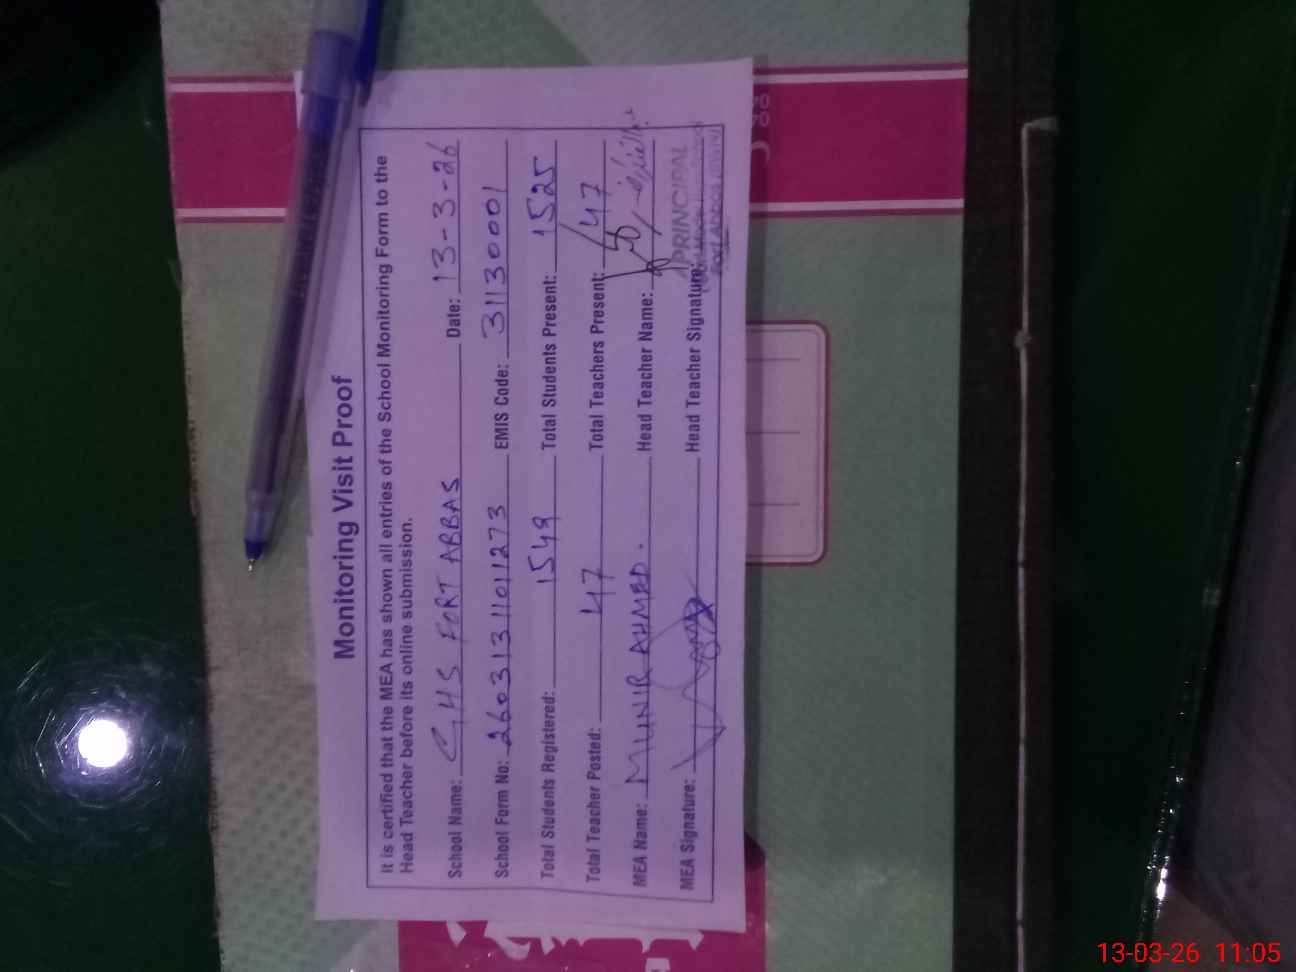 Monitoring Visit Proof
It is certified that the MEA has shown all entries of the School Monitoring Form to the
Head Teacher before its online submission.
School Name: GHS FORT ABBAS Date: 13-3-26
School Form No: 26031311011273 EMIS Code: 31130001
Total Students Registered: 1549 Total Students Present: 1525
Total Teacher Posted: 47 Total Teachers Present: 47
MEA Name: MUNIR AHMED. Head Teacher Name:
MEA Signature: Head Teacher Signature:
PRINCIPAL
13-03-26 11:05